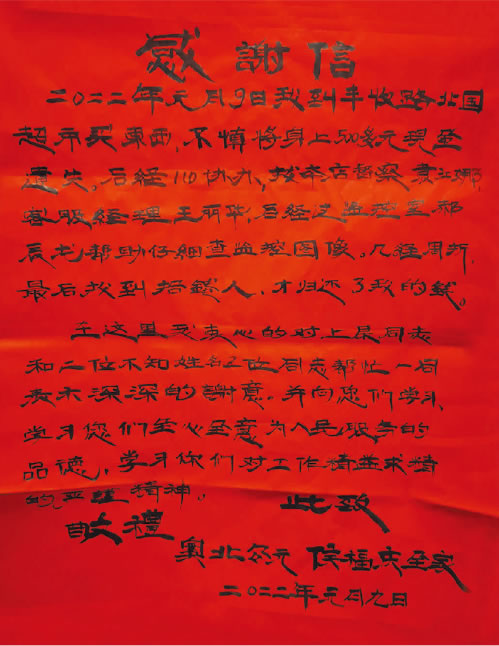 感謝信
二〇二二年元月9日我到丰收路北国
超市买東西,不慎将身上500多元現金
遺失,后経110协办,找本店督察袁北娜,
客服経理王丽彩,后経过监控室祁
辰龙帮助仔細查监控图像。几経周折,
最后找到拾錢人,才归还了我的钱。
在这里我衷心的对上层同志
和二位不知姓名2位同志帮忙一同
表示深深的謝意。并向您们学习,
学习您们全心全意为人民服务的
品德,学习你们对工作精益求精
的严謹精神。
此致
敬禮
奥北公元 侯福忠全家
二〇二二年元月九日